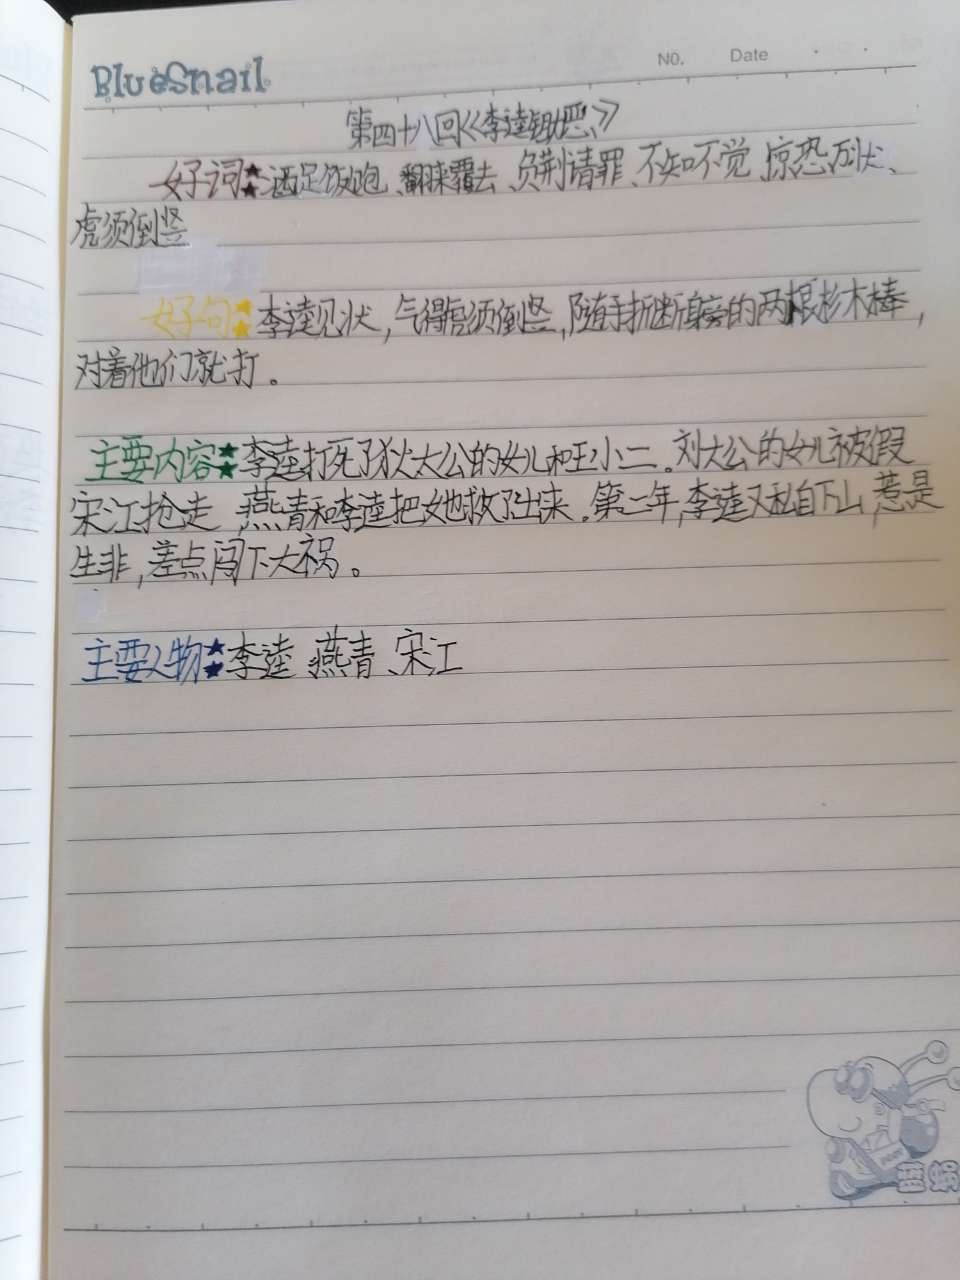 BlueSnail
No. Date
第四十八回《李逵锄恶》
好词:酒足饭饱、翻来覆去、负荆请罪、不知不觉、惊恐万状、
虎须倒竖
好句:李逵见状,气得虎须倒竖,随手折断身旁的两根杉木棒,
对着他们就打。
主要内容:李逵打死了狄太公的女儿和王小二。刘太公的女儿被假
宋江抢走,燕青和李逵把她救了出来。第二年,李逵又私自下山,惹是
生非,差点闯下大祸。
主要人物:李逵、燕青、宋江
蓝蜗